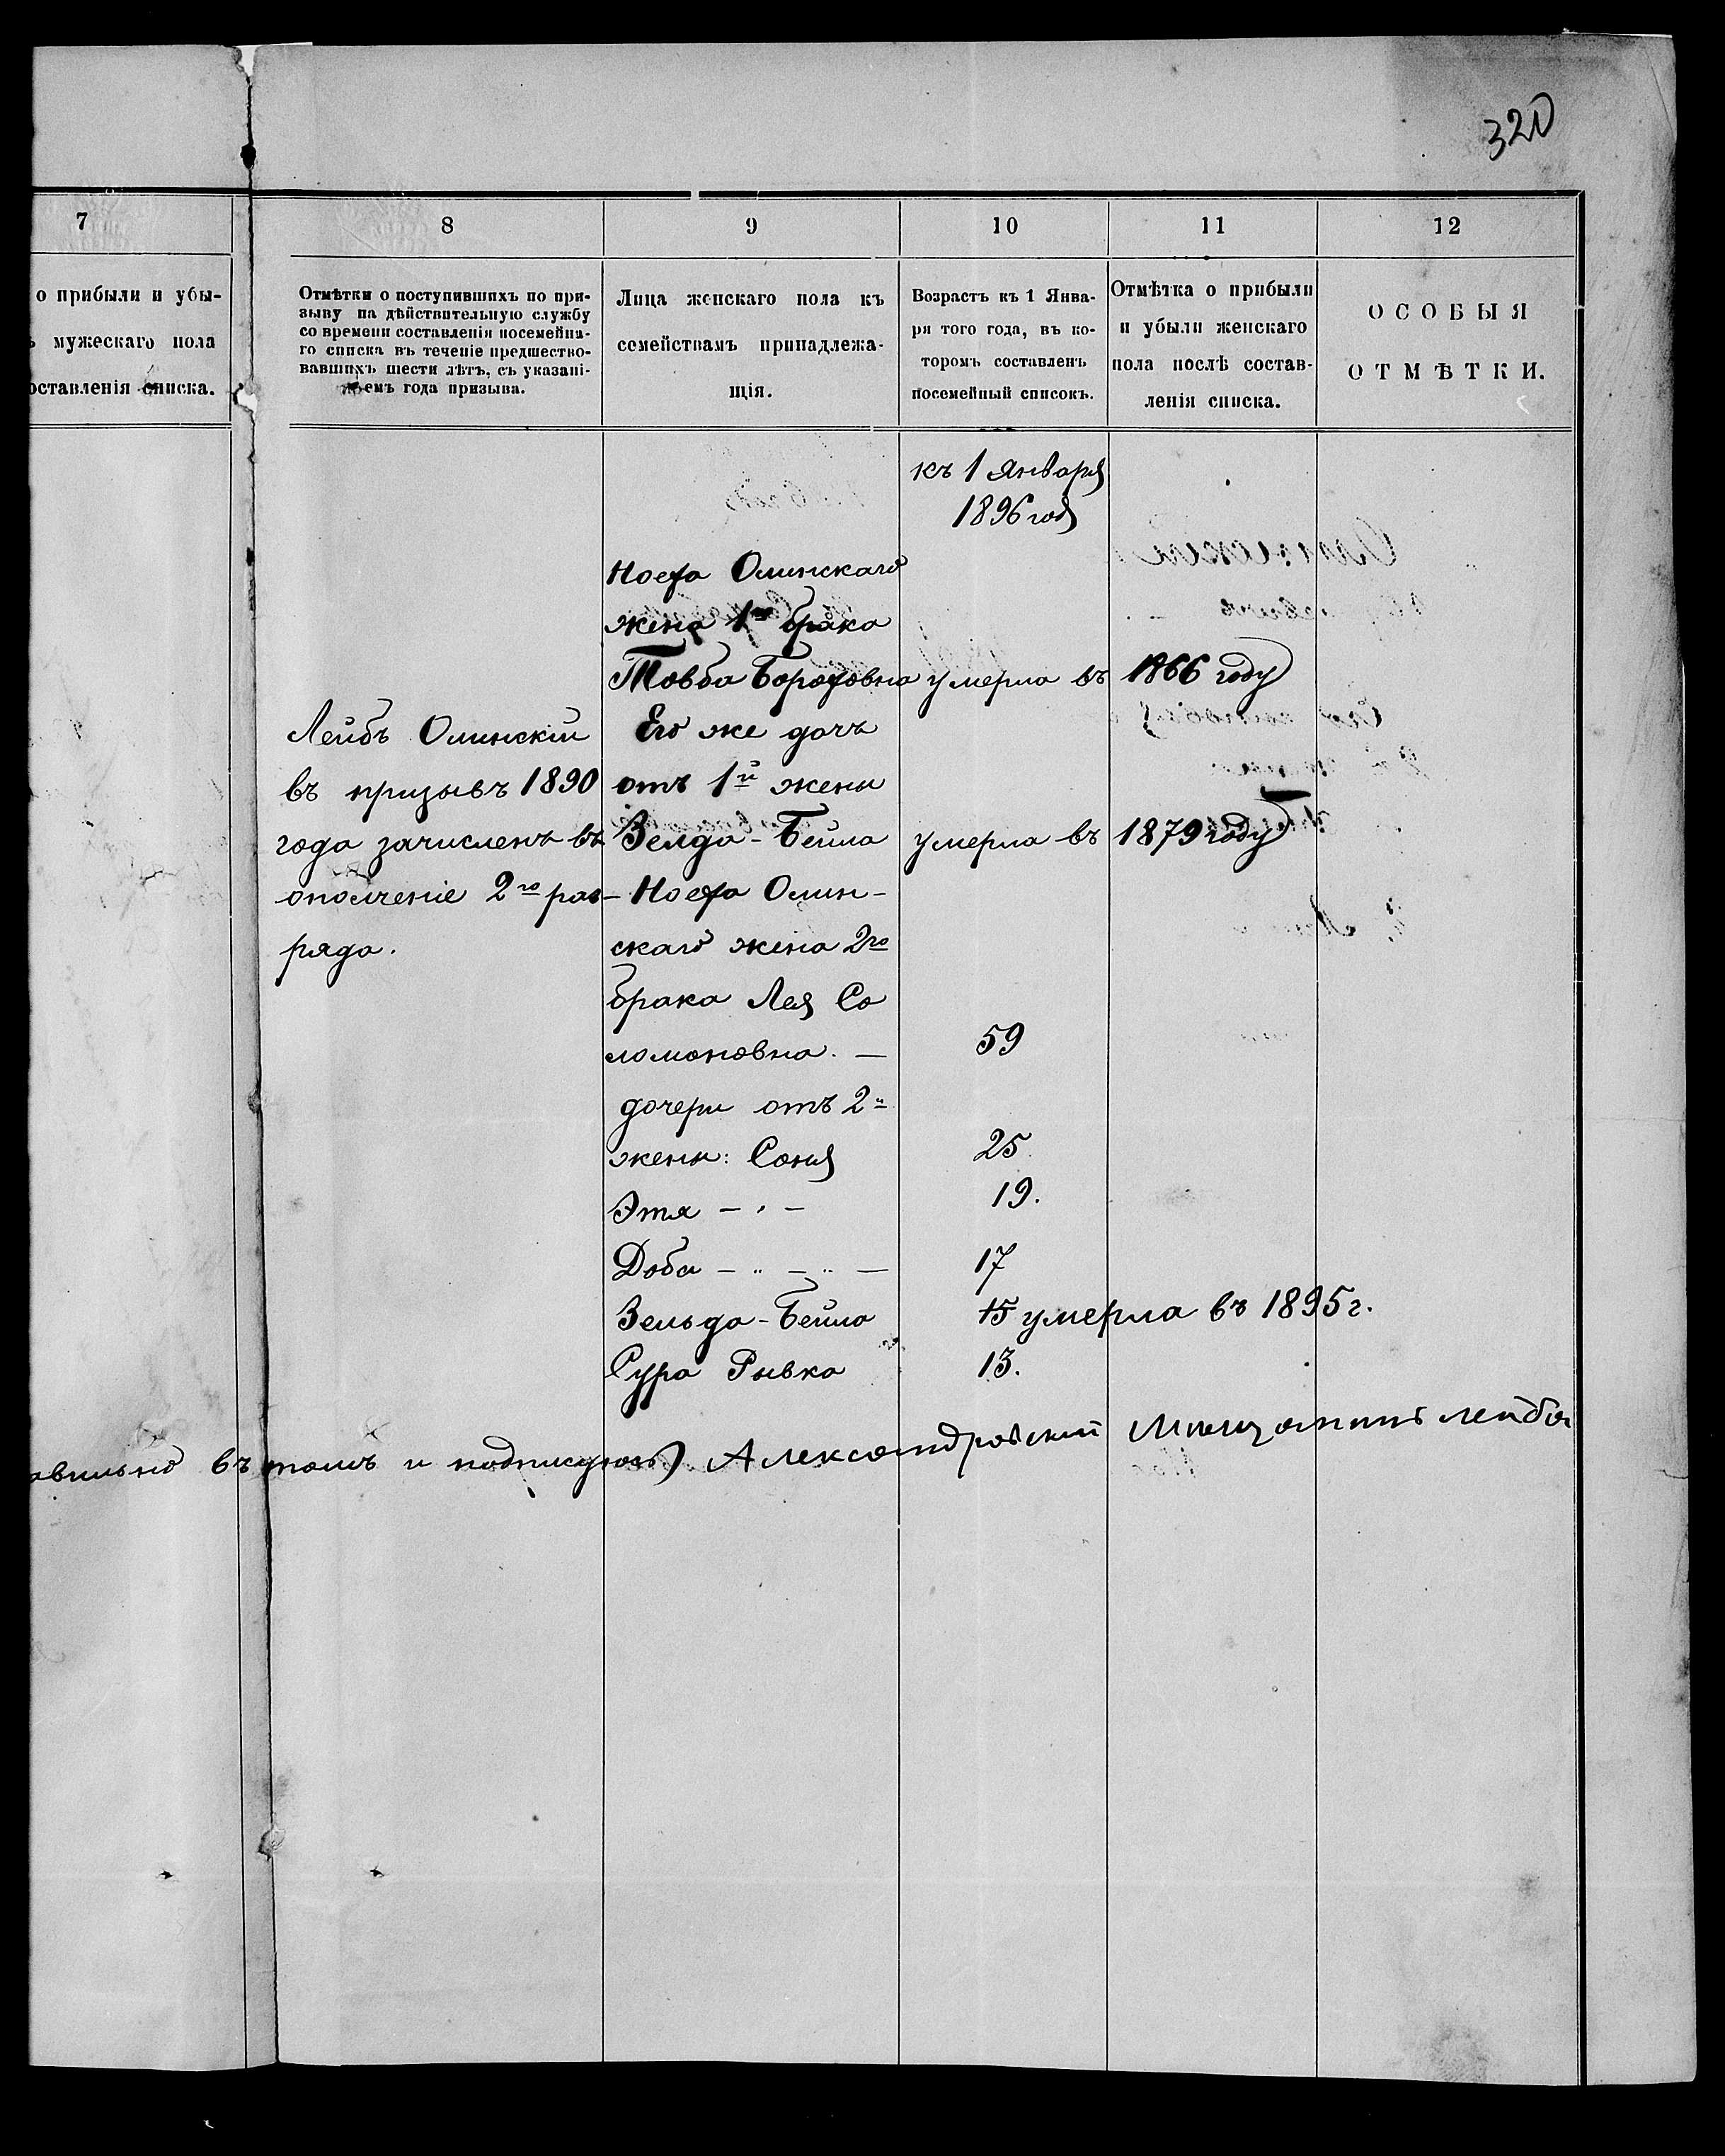 320
7
о прибыли и убы-
мужескаго пола
оставленія списка.
8
Отмѣтки о поступившихъ по при-
зыву на дѣйствительную службу
со времени составленія посемейна-
го списка въ теченіе предшество-
вавшихъ шести лѣтъ, съ указані-
емъ года призыва.
9
Лица женскаго пола къ
семействамъ принадлежа-
щія.
10
Возрастъ къ 1 Янва-
ря того года, въ ко-
торомъ составленъ
посемейный списокъ.
11
Отмѣтка о прибыли
и убыли женскаго
пола послѣ состав-
ленія списка.
12
ОСОБЫЯ
ОТМѢТКИ.
Лейбъ Олинскій
въ призывъ 1890
года зачисленъ въ
ополченіе 2го раз-
ряда.
къ 1 Января
1896 года
Ноеха Олинскаго
жена 1го брака
Товба Бороховна умерла въ 1866 году
Его же дочь
отъ 1й жены
Зелда-Бейла умерла въ 1879 году
Ноеха Олин-
скаго жена 2го
брака Лея Со
ломоновна. — 59
дочери отъ 2й
жены: Соня 25
Этя — " — 19.
Доба — " — " — 17
Зельда-Бейла 15 умерла въ 1895 г.
Сура Рывка 13.
авильно въ томъ и подписуюсь Александровский Мещанинъ лейба